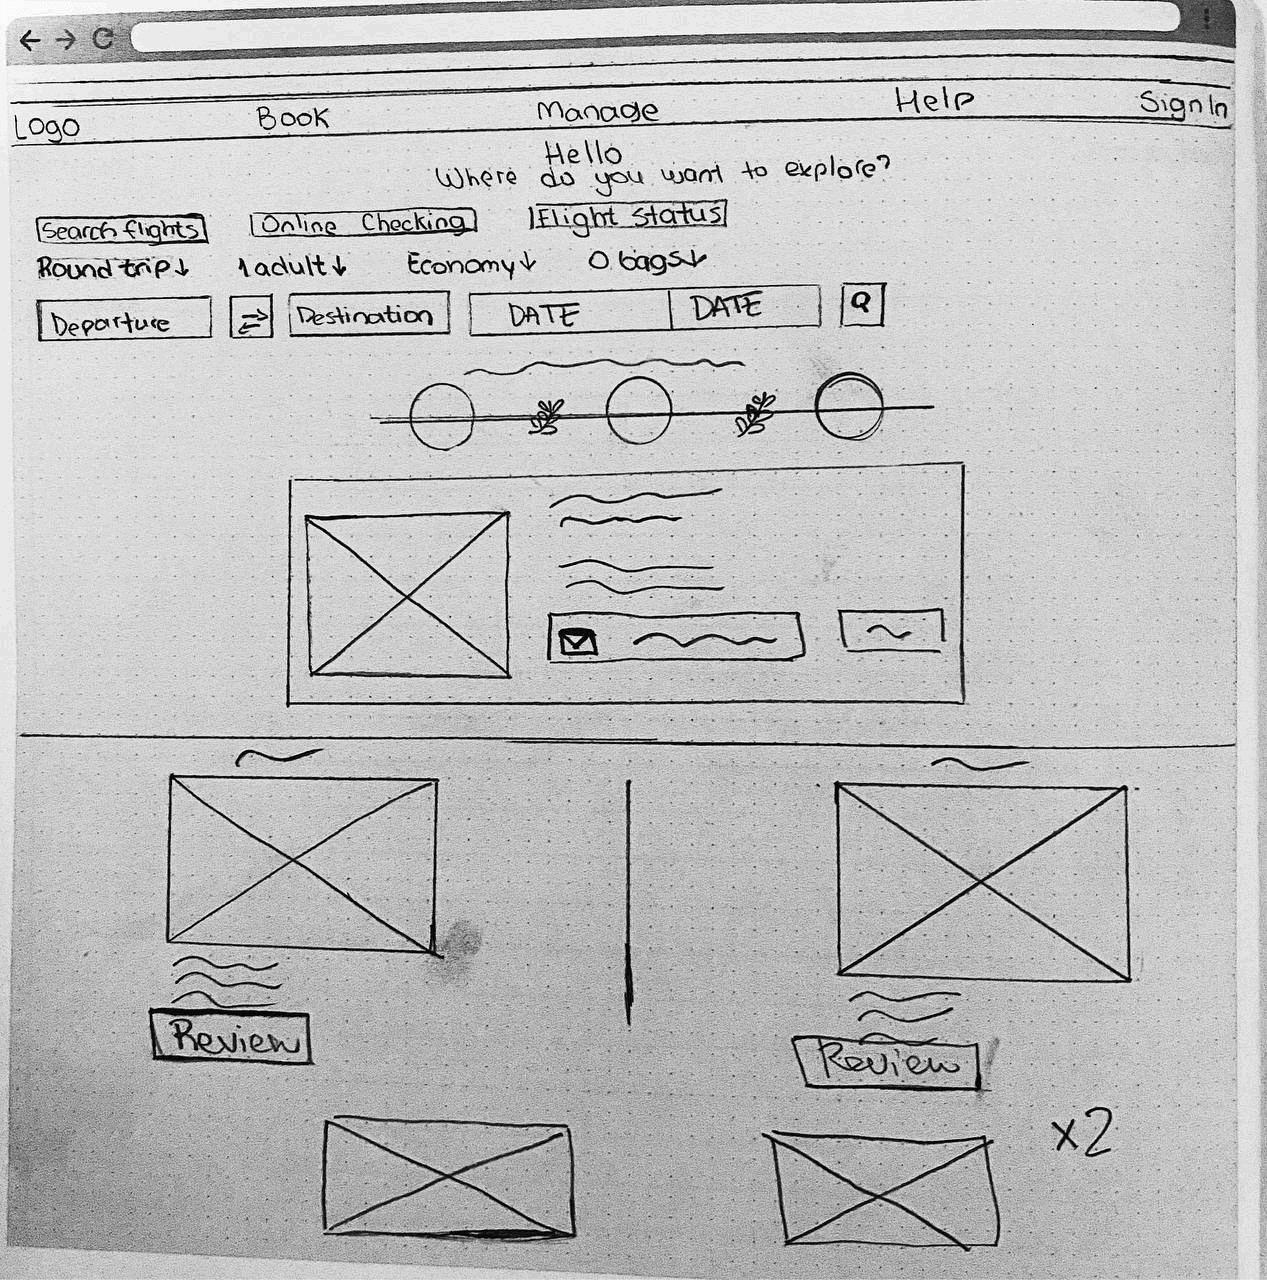 Logo Book Manage Help Sign In
Hello
Where do you want to explore?
Search flights Online Checking Flight Status
Round trip↓ 1 adult↓ Economy↓ 0 bags↓
Departure Destination DATE DATE
Review
Review
x2